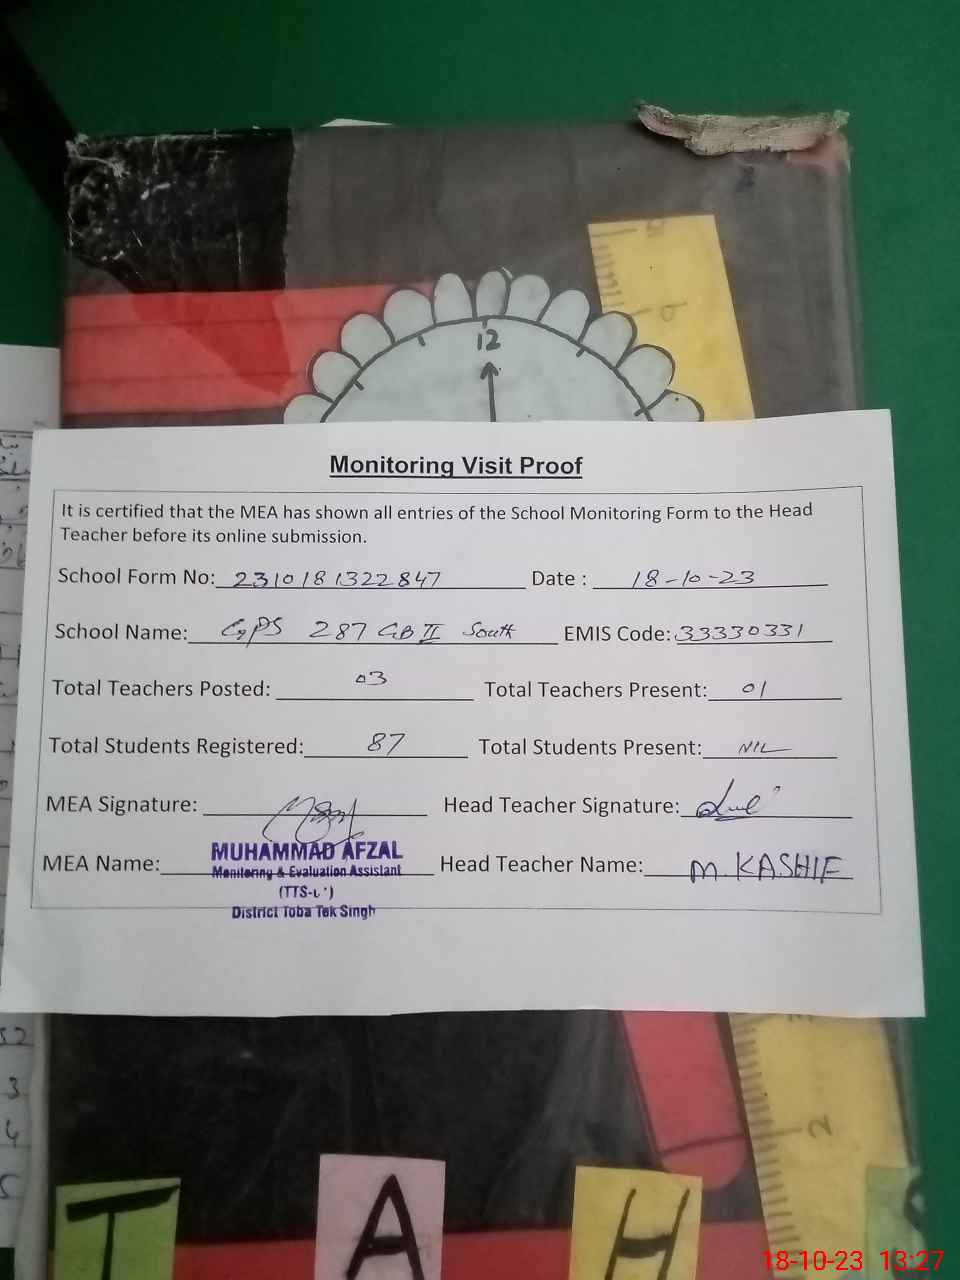 12
9
Monitoring Visit Proof
It is certified that the MEA has shown all entries of the School Monitoring Form to the Head
Teacher before its online submission.
School Form No: 2310181322847 Date : 18-10-23
School Name: GPS 287 GB II South EMIS Code: 33330331
Total Teachers Posted: 03 Total Teachers Present: 01
Total Students Registered: 87 Total Students Present: NIL
MEA Signature: Head Teacher Signature:
MEA Name: MUHAMMAD AFZAL Head Teacher Name: M. KASHIF
Monitoring & Evaluation Assistant
District Toba Tek Singh
3
4
2
T A H
18-10-23 13:27